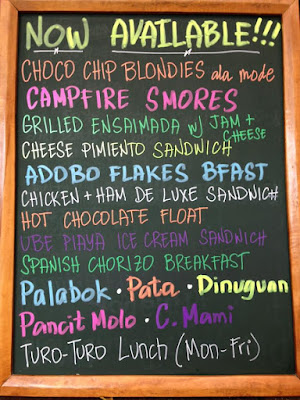 NOW AVAILABLE!!!
CHOCO CHIP BLONDIES ala mode
CAMPFIRE SMORES
GRILLED ENSAIMADA w/ JAM + CHEESE
CHEESE PIMIENTO SANDWICH
ADOBO FLAKES BFAST
CHICKEN + HAM DE LUXE SANDWICH
HOT CHOCOLATE FLOAT
UBE PIAYA ICE CREAM SANDWICH
SPANISH CHORIZO BREAKFAST
Palabok · Pata · Dinuguan
Pancit Molo · C. Mami
TURO-TURO LUNCH (MON-FRI)